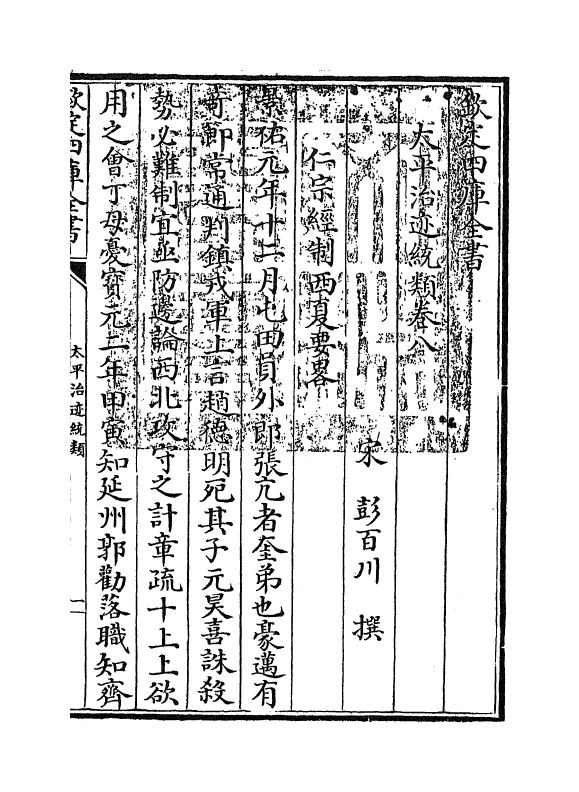 欽定四庫全書
太平治迹統類卷八
宋 彭百川 撰
仁宗經制西夏要畧
景祐元年十二月屯田員外郎張亢者奎弟也豪邁有
奇節常通判鎮戎軍上言趙德明死其子元昊喜誅殺
勢必難制宜亟防邊論西北攻守之計章疏十上上欲
用之會丁母憂寳元二年甲寅知延州郭勸落職知齊
欽定四庫全書
太平治迹統類
一